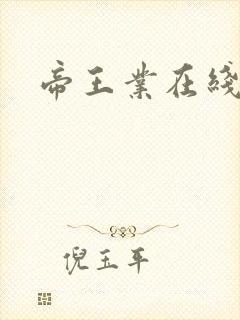 帝王業在綫
倪玉平